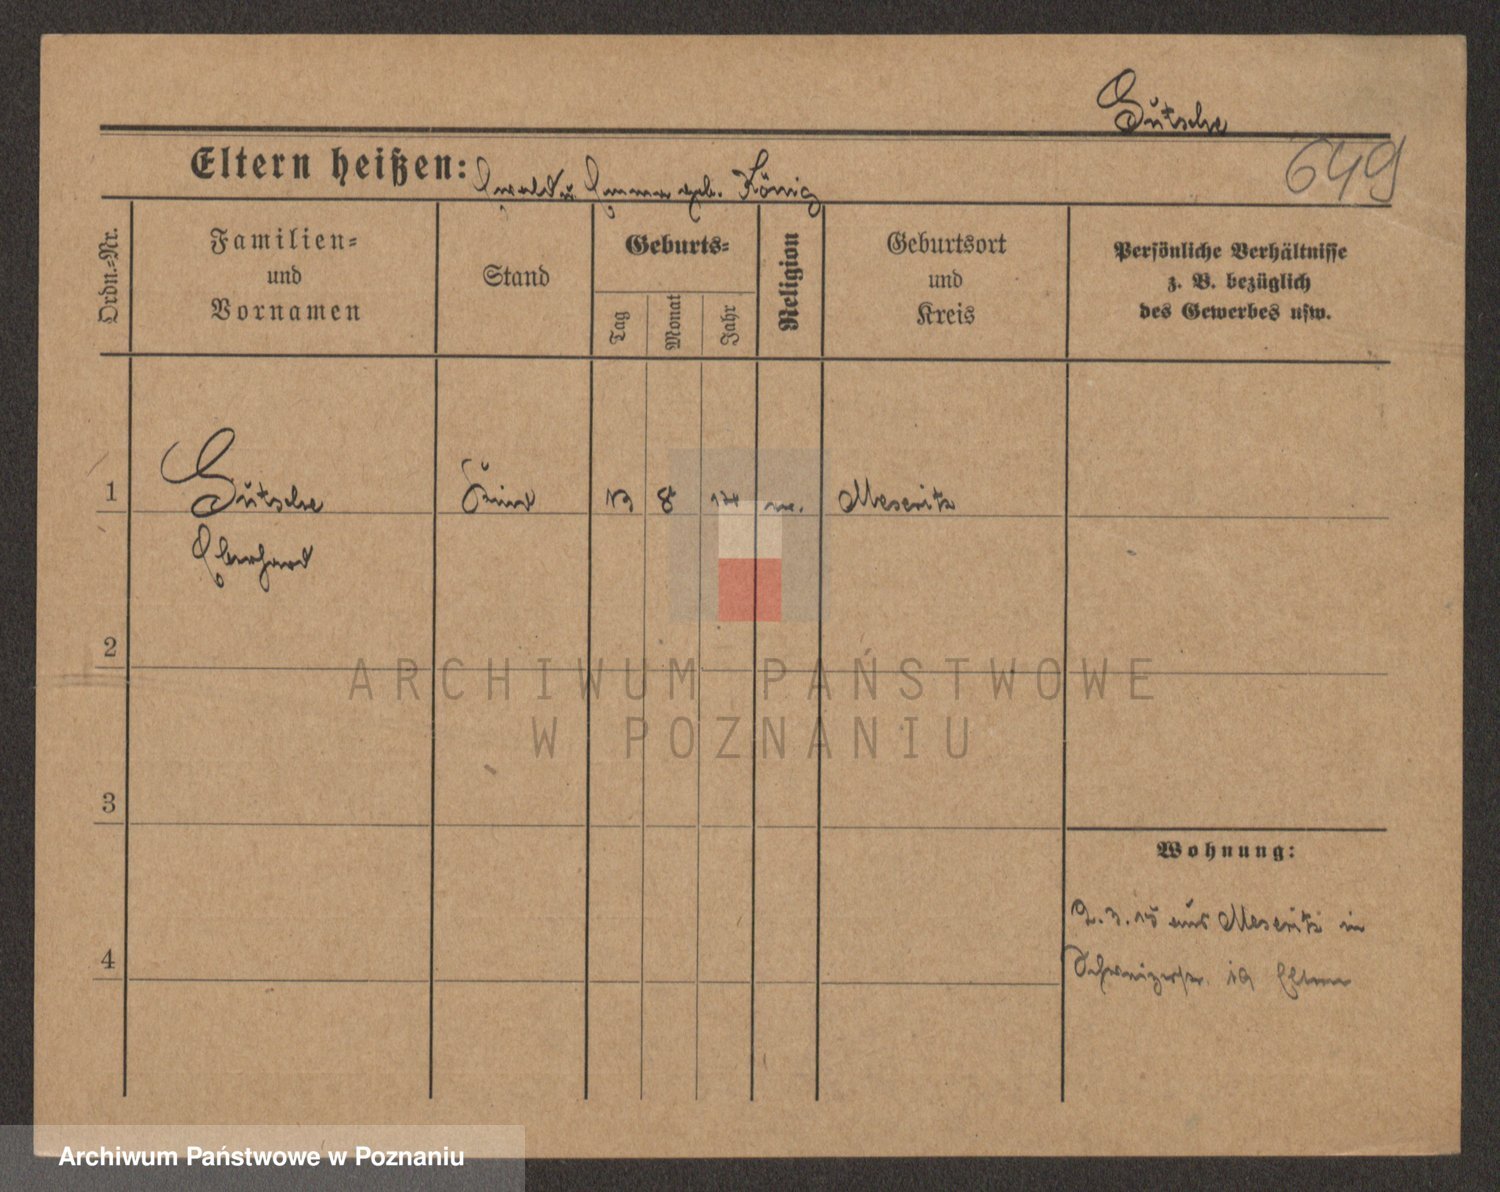 Gutsche
649
Eltern heißen: Ewald u. Emma geb. König
Ordn.-Nr.
Familien-
und
Vornamen
Stand
Geburts-
Tag
Monat
Jahr
Religion
Geburtsort
und
Kreis
Persönliche Verhältnisse
z. B. bezüglich
des Gewerbes usw.
1
Gutsche
Kind
8
Meseritz
Eberhard
2
ARCHIWUM PAŃSTWOWE
W POZNANIU
3
Wohnung:
2.3.15 aus Meseritz in
4
Schweizerstr. 19 Eltern
Archiwum Państwowe w Poznaniu